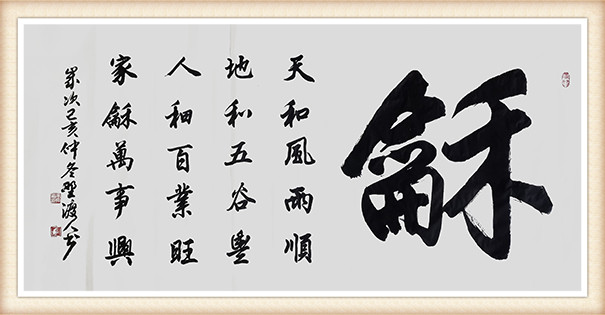 龢
天和風雨順
地和五谷豐
人和百業旺
家龢萬事興
歲次己亥仲冬野渡人書